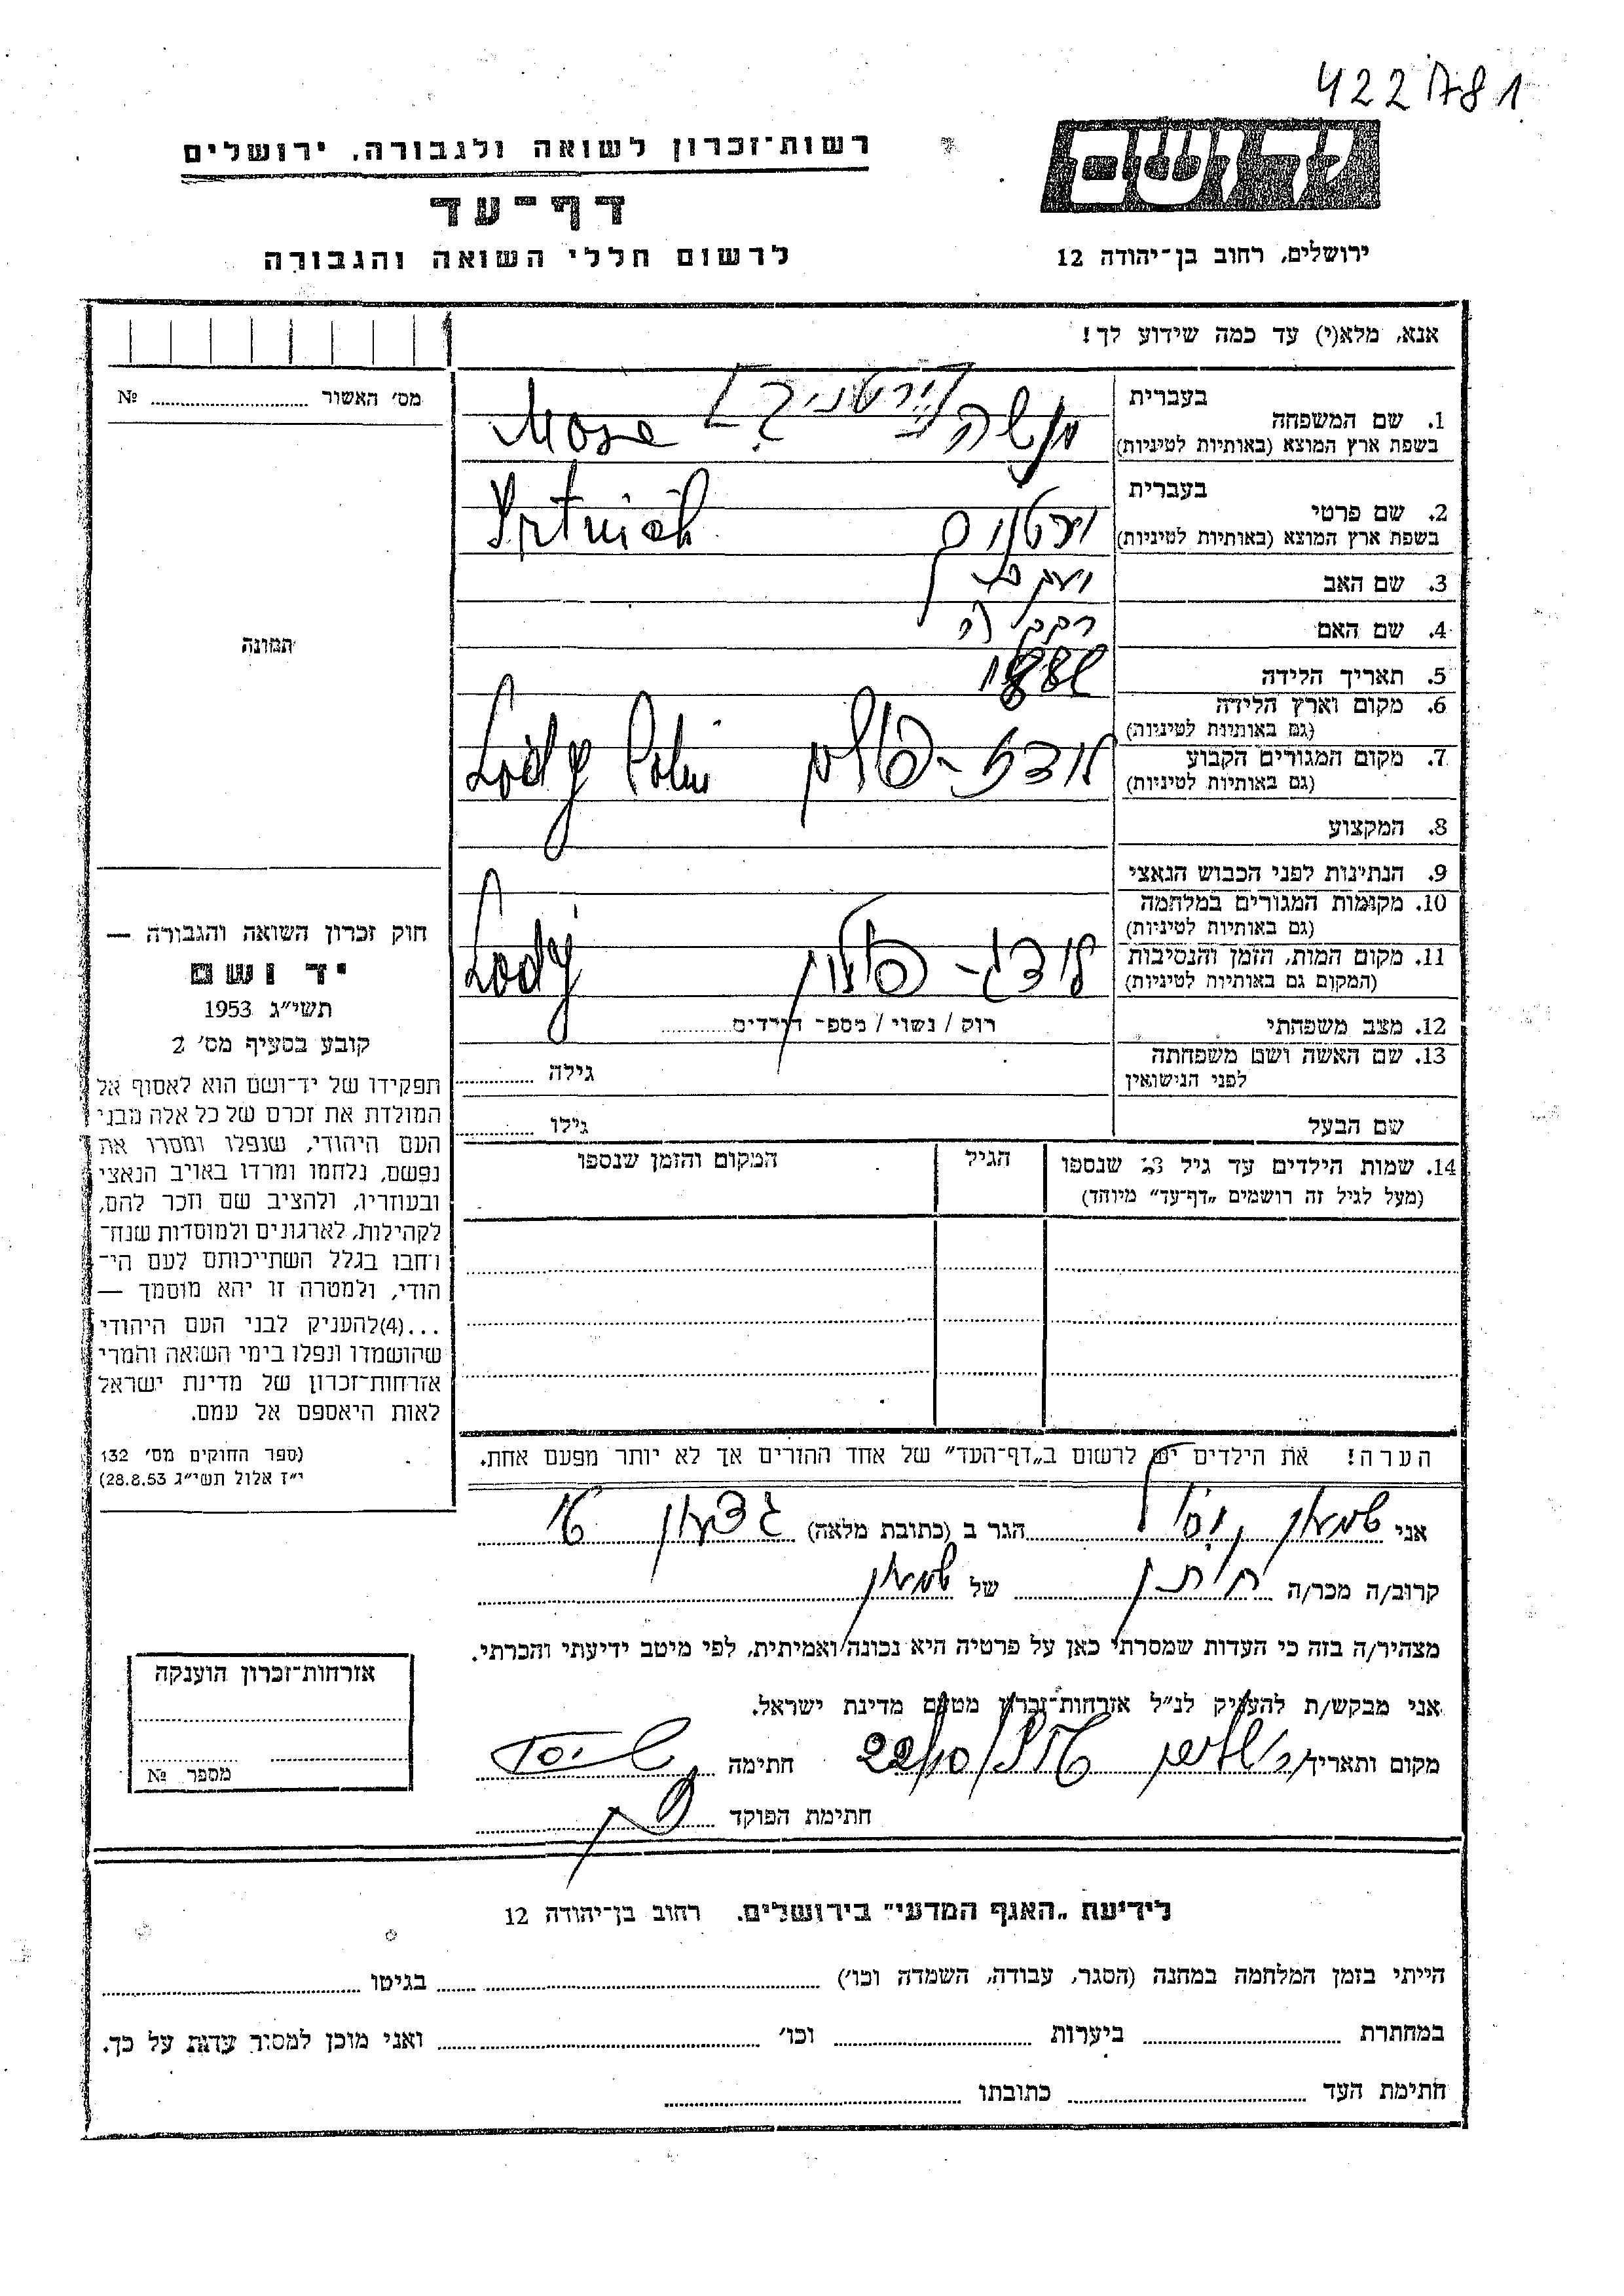 422781
רשות־זכרון לשואה ולגבורה, ירושלים
דף־עד
לרשום חללי השואה והגבורה
ידושם
ירושלים, רחוב בן־יהודה 12
אנא, מלא(י) עד כמה שידוע לך!
מס' האשור № 
תמונה
1. שם המשפחה
בעברית
בשפת ארץ המוצא (באותיות לטיניות)
משה
Mose
2. שם פרטי
בעברית
בשפת ארץ המוצא (באותיות לטיניות)
3. שם האב
יעקב
4. שם האם
5. תאריך הלידה
1888
6. מקום וארץ הלידה
(גם באותיות לטיניות)
7. מקום המגורים הקבוע
(גם באותיות לטיניות)
לודז - פולין
8. המקצוע
9. הנתינות לפני הכבוש הנאצי
10. מקומות המגורים במלחמה
(גם באותיות לטיניות)
11. מקום המות, הזמן והנסיבות
(המקום גם באותיות לטיניות)
לודז - פולין
12. מצב משפחתי
רוק / נשוי / מספר הילדים
13. שם האשה ושם משפחתה
לפני הנישואין
גילה
שם הבעל
גילו
14. שמות הילדים עד גיל 18 שנספו
(מעל לגיל זה רושמים „דף־עד" מיוחד)
הגיל
המקום והזמן שנספו
חוק זכרון השואה והגבורה —
יד ושם
תשי"ג 1953
קובע בסעיף מס' 2
תפקידו של יד־ושם הוא לאסוף אל
המולדת את זכרם של כל אלה מבני
העם היהודי, שנפלו ומסרו את
נפשם, נלחמו ומרדו באויב הנאצי
ובעוזריו, ולהציב שם וזכר להם,
לקהילות, לארגונים ולמוסדות שנח־
רחבו בגלל השתייכותם לעם הי־
הודי, ולמטרה זו יהא מוסמך —
...(4)להעניק לבני העם היהודי
שהושמדו ונפלו בימי השואה והמרי
אזרחות־זכרון של מדינת ישראל
לאות היאספם אל עמם.
(ספר החוקים מס' 132
י"ז אלול תשי"ג 28.8.53)
הערה! את הילדים יש לרשום ב„דף־העד" של אחד ההורים אך לא יותר מפעם אחת.
אני שמעון הגר ב (כתובת מלאה) גדעון
קרוב/ה מכר/ה של שמעון
מצהיר/ה בזה כי העדות שמסרתי כאן על פרטיה היא נכונה ואמיתית, לפי מיטב ידיעתי והכרתי.
אני מבקש/ת להעניק לנ"ל אזרחות־זכרון מטעם מדינת ישראל.
מקום ותאריך 22/10 חתימה
חתימת הפוקד
אזרחות־זכרון הוענקה
מספר №
לידיעת „האגף המדעי" בירושלים. רחוב בן־יהודה 12
הייתי בזמן המלחמה במחנה (הסגר, עבודה, השמדה וכו') בגיטו
במחתרת ביערות וכו' ואני מוכן למסור עדות על כך.
חתימת העד כתובתו